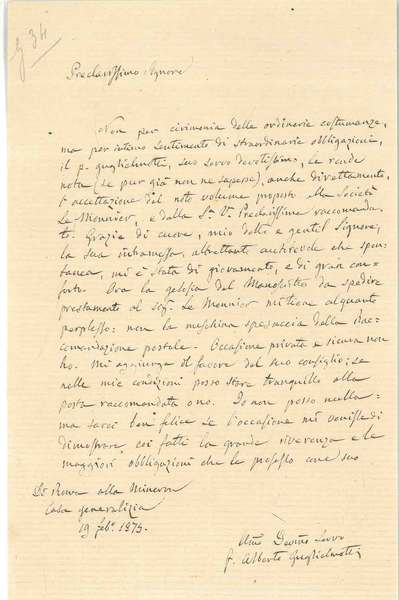 g 34
Preclarissimo Signore
Non per cirimonia delle ordinarie costumanze,
ma per intimo sentimento di straordinarie obbligazioni,
il p. Guglielmotti, suo servo devotissimo, Le rende
nota (se pur già non ne sapesse), anche direttamente,
l'accettazione del noto volume proposto alla Società
Le Monnier, e dalla Sa. Va. Preclarissima raccomanda-
to. Grazie di cuore, mio dotto e gentil Signore;
la sua intramessa, altrettanto autorevole che spon-
tanea, mi è stata di giovamento, e di gran con-
forto. Ora la gelosia del Manoscritto da spedire
prestamente al sigr. Le Monnier mi tiene alquanto
perplesso: non la meschina spesaccia della Rac-
comandazione postale. Occasione privata e sicura non
ho. Mi aggiunga il favore del suo consiglio; se
nelle mie condizioni posso stare tranquillo alla
posta raccomandata o no. Io non posso nulla:
ma sarei ben felice se l'occasione mi venisse di
dimostrare coi fatti la grande riverenza e le
maggiori obbligazioni che le professo come suo
Di Roma alla Minerva
Casa generalizia
19 febo. 1875.
Umo Devmo Servo
f. Alberto Guglielmotti